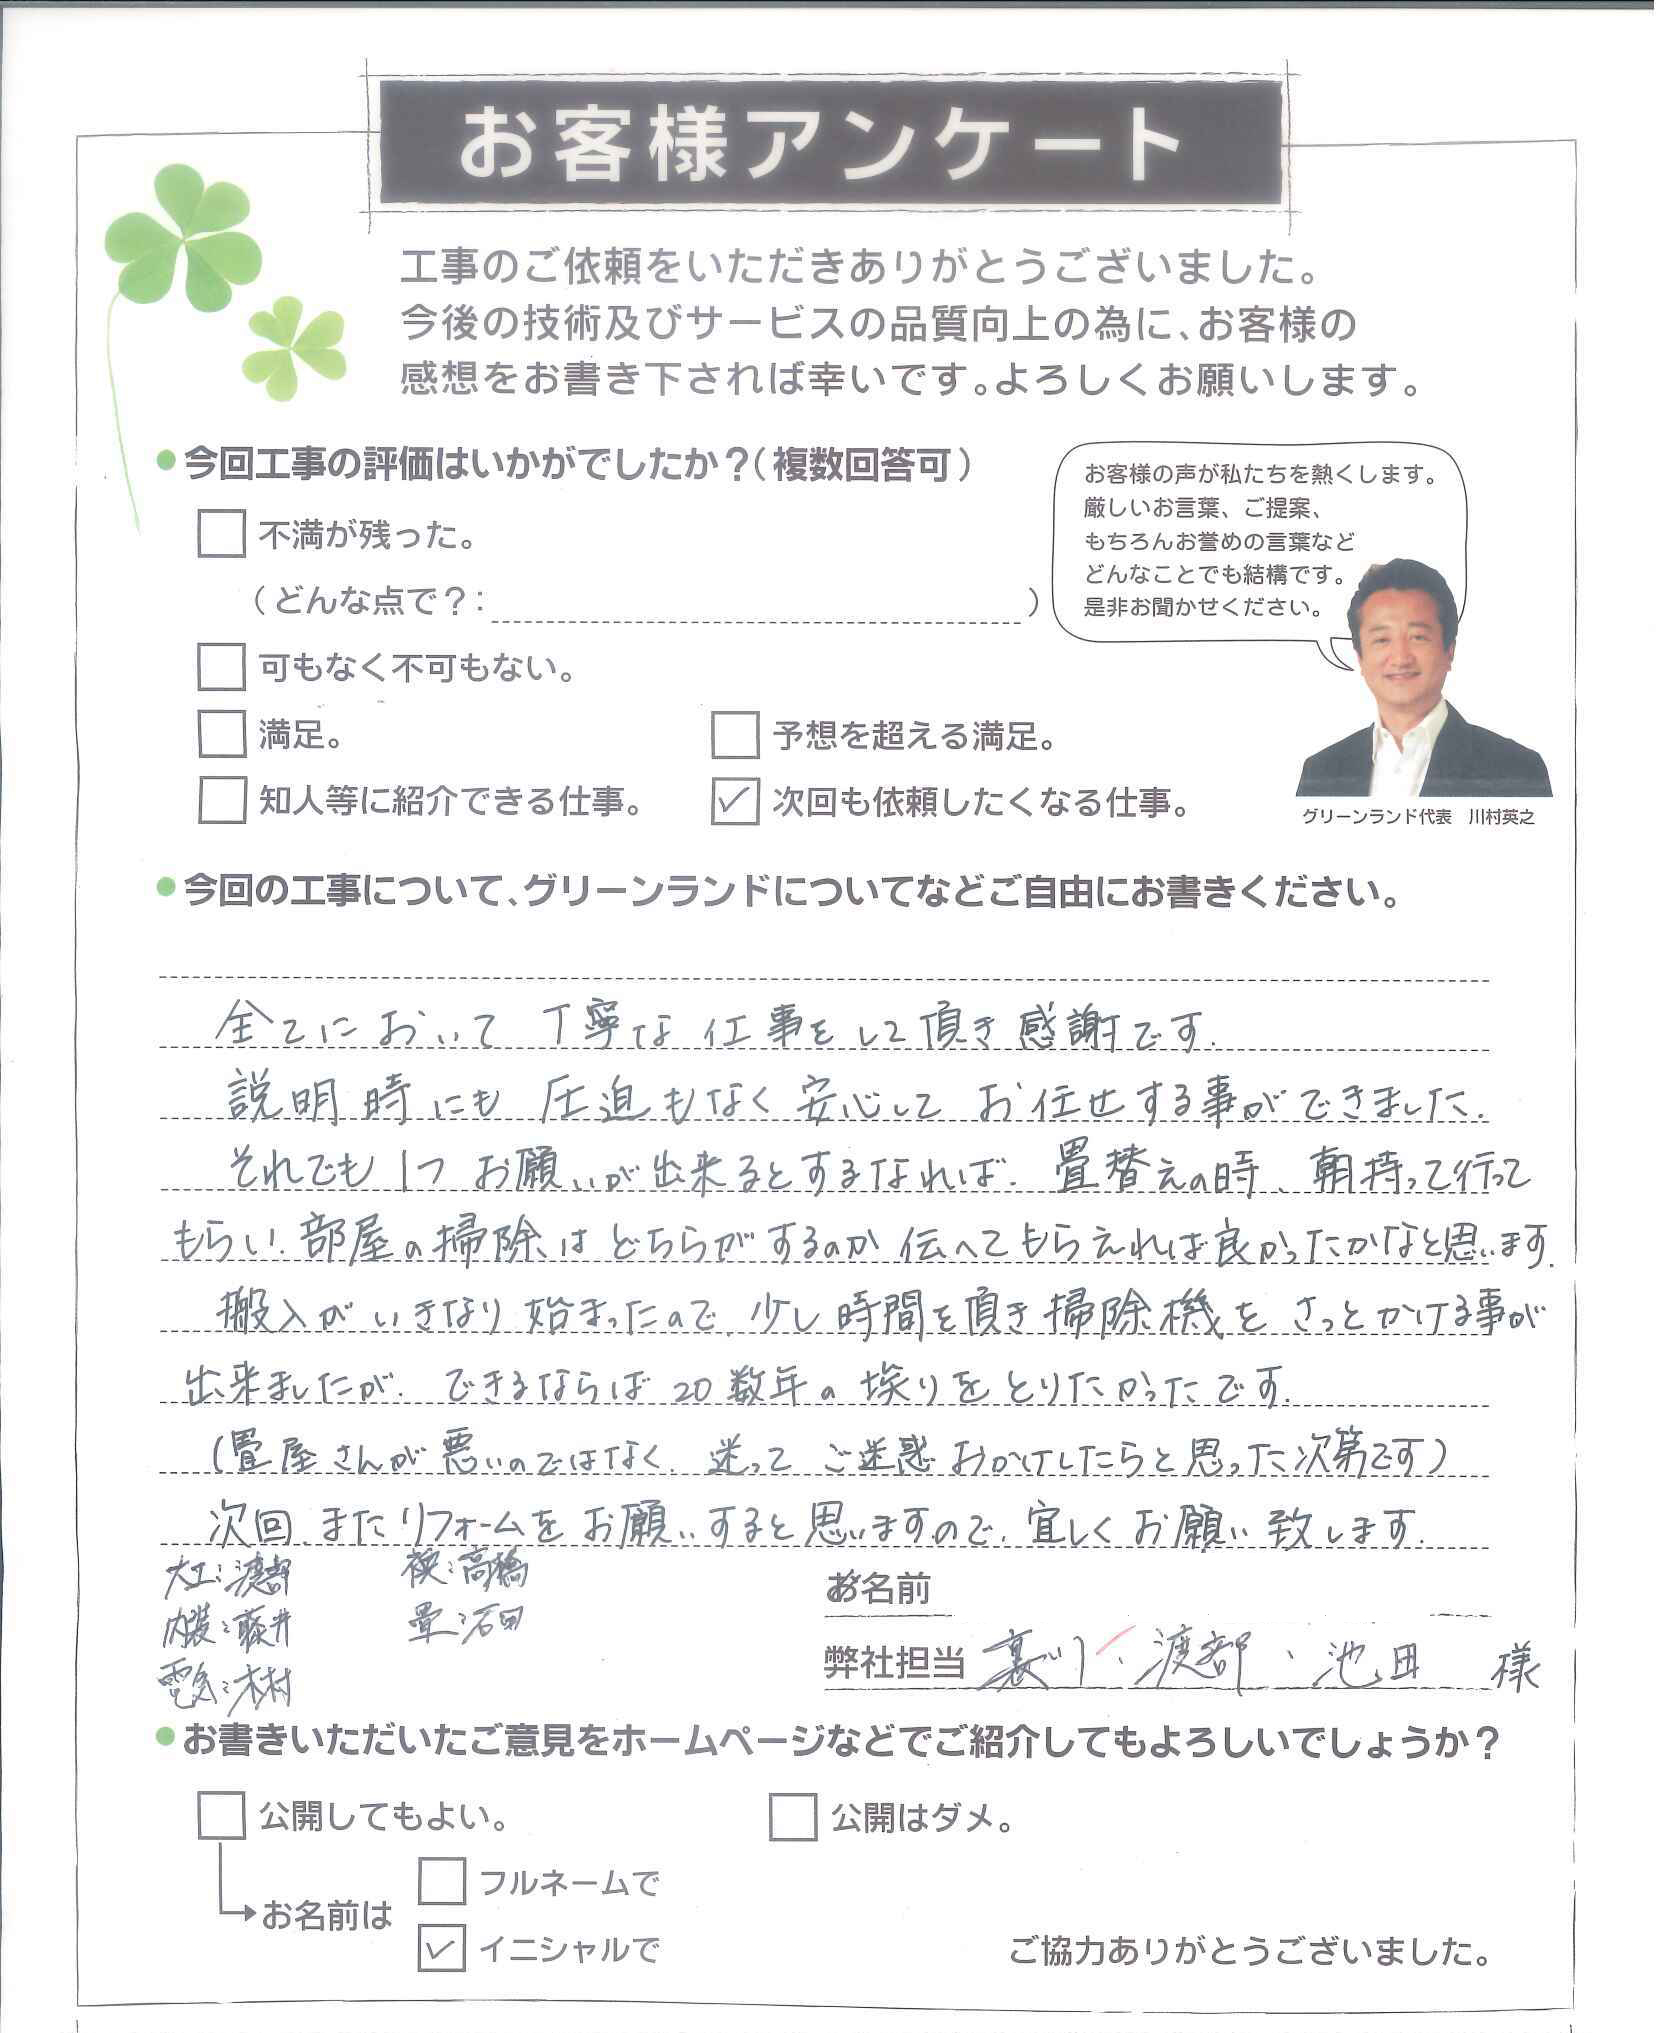 お客様アンケート
工事のご依頼をいただきありがとうございました。
今後の技術及びサービスの品質向上の為に、お客様の
感想をお書き下されば幸いです。よろしくお願いします。
今回工事の評価はいかがでしたか？（複数回答可）
不満が残った。
（どんな点で？： ）
可もなく不可もない。
満足。
予想を超える満足。
知人等に紹介できる仕事。
✓ 次回も依頼したくなる仕事。
お客様の声が私たちを熱くします。
厳しいお言葉、ご提案、
もちろんお誉めの言葉など
どんなことでも結構です。
是非お聞かせください。
グリーンランド代表 川村英之
今回の工事について、グリーンランドについてなどご自由にお書きください。
全てにおいて 丁寧な仕事をして頂き感謝です.
説明時にも 圧迫もなく 安心して お任せする事ができました.
それでも 1つ お願いが出来るとするなれば. 畳替えの時、朝持って行って
もらい. 部屋の掃除はどちらがするのか 伝へてもらえれば良かったかなと思います.
搬入が いきなり 始まったので. 少し時間を頂き掃除機を さっとかける事が
出来ましたが. できるならば 20数年の埃りをとりたかったです.
(畳屋さんが悪いのではなく. 迷って ご迷惑 おかけしたらと思った次第です)
次回. またリフォームをお願いすると思いますので. 宜しくお願い致します.
大工：渡部
襖：高橋
内装：藤井
畳：石田
電気：木村
お名前
弊社担当 渡部・池田 様
お書きいただいたご意見をホームページなどでご紹介してもよろしいでしょうか？
公開してもよい。
公開はダメ。
お名前は
フルネームで
✓ イニシャルで
ご協力ありがとうございました。